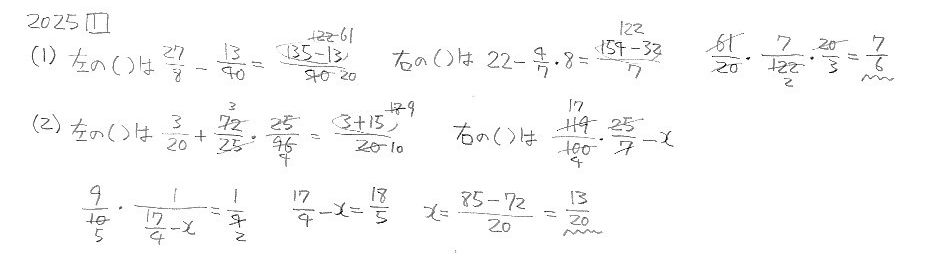 2025 1
(1) 左の( )は 27/8 - 13/40 = (135-13)/40 122 61 20 右の( )は 22 - 4/7・8 = (154-32)/7 122 61/20・7/122・20/3 = 7/6 2
(2) 左の( )は 3/20 + 72/25・25/96 = (3+15)/20 3 4 18 9 10 右の( )は 119/100・25/7 - x 17 4
9/10・1/(17/4 - x) = 1/4 5 2 17/4 - x = 18/5 x = (85-72)/20 = 13/20